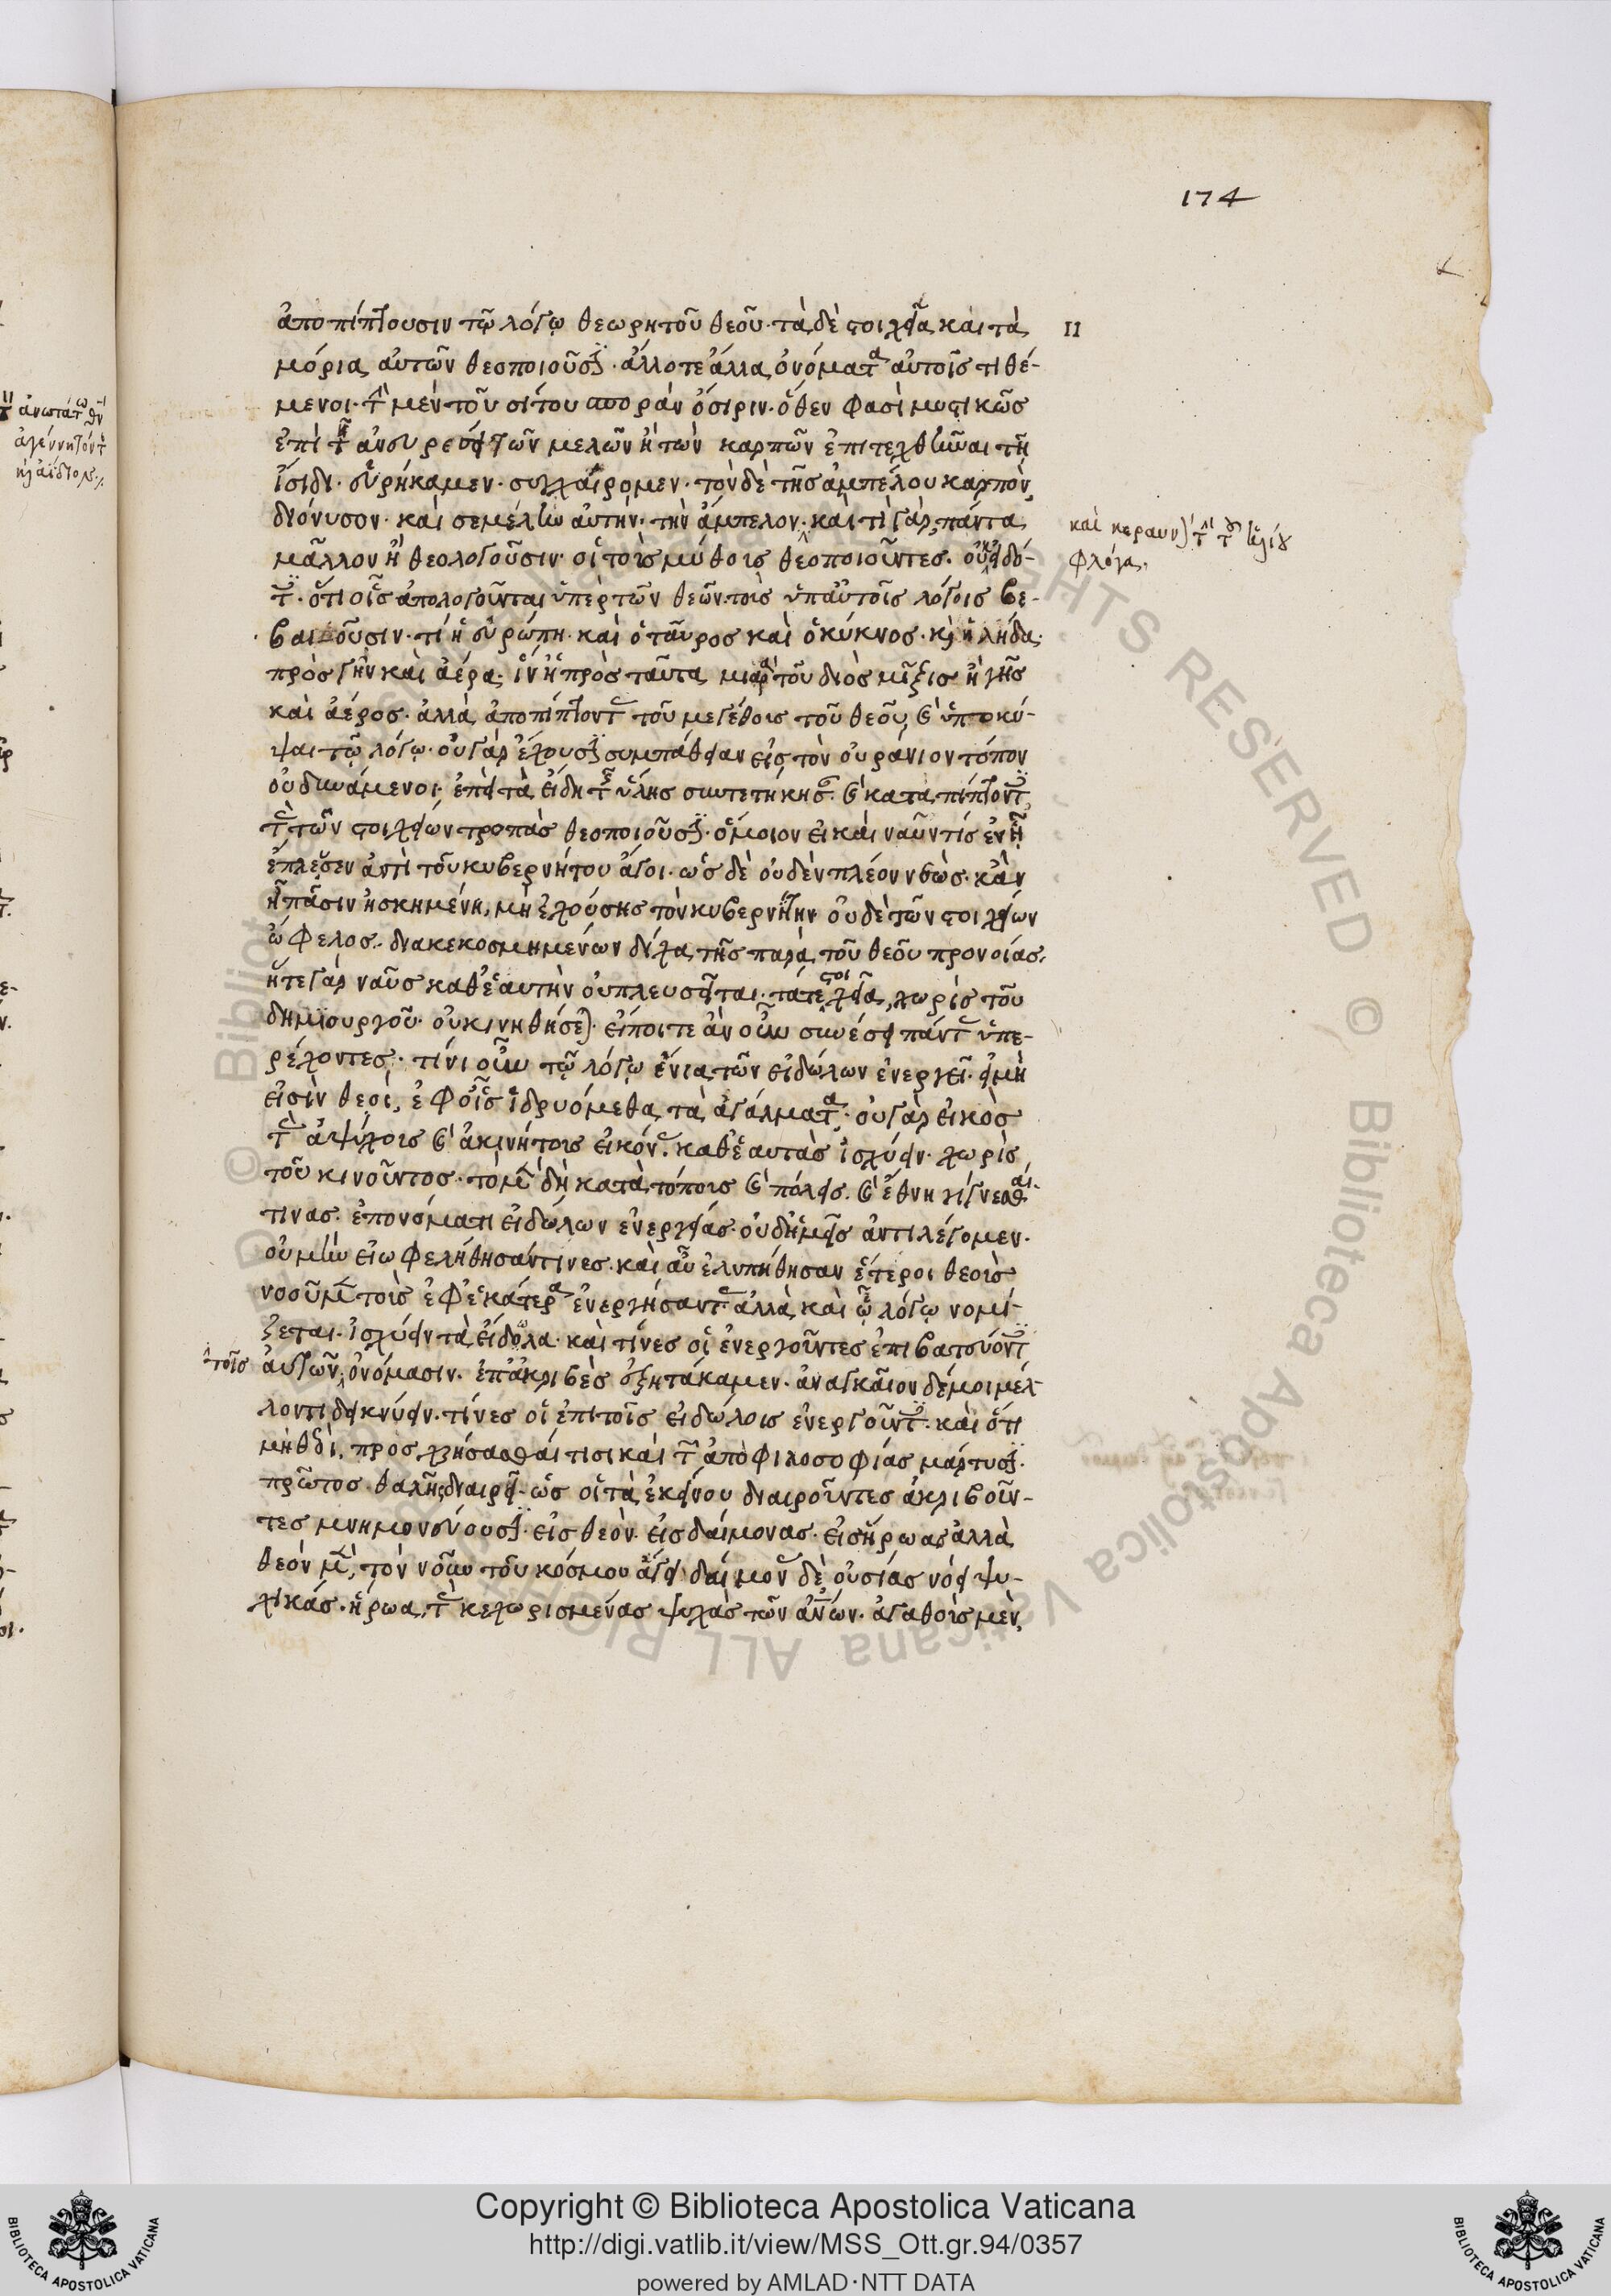 174
ἀποπίπτουσιν τῷ λόγῳ θεωρητοῦ θεοῦ· τὰ δὲ στοιχεῖα καὶ τὰ
μόρια αὐτῶν θεοποιοῦσιν· ἄλλοτε ἄλλα ὀνόματα αὐτοῖς τιθέ-
μενοι· τὴν μὲν τοῦ σίτου σπορὰν ὄσιριν· ὅθεν φασὶ μυστικῶς
ἐπὶ τῇ ἀνευρέσει τῶν μελῶν ἢ τῶν καρπῶν ἐπιτεχθῆναι τῇ
ἴσιδι· εὑρήκαμεν· συγχαίρομεν· τὸν δὲ τῆς ἀμπέλου καρπὸν
διόνυσον· καὶ σεμέλην αὐτήν· τὴν ἄμπελον· καὶ τί γὰρ πάντα
μᾶλλον ἢ θεολογοῦσιν· οἱ τοὺς μύθους θεοποιοῦντες· οὐκ εἰδό-
τες· ὅτι οἷς ἀπολογοῦνται ὑπὲρ τῶν θεῶν· τοὺς ὑπ' αὐτοῖς λόγους βε-
βαιοῦσιν· τί ἡ εὐρώπη· καὶ ὁ ταῦρος καὶ ὁ κύκνος· καὶ ἡ λήδα·
πρὸς γῆν καὶ ἀέρα· ἵν' ἡ πρὸς ταῦτα μιαρὰ τοῦ διὸς μῖξις ἢ γῆς
καὶ ἀέρος· ἀλλὰ ἀποπίπτοντες τοῦ μεγέθους τοῦ θεοῦ, καὶ ὑπερκύ-
ψαι τῷ λόγῳ· οὐ γὰρ ἔχουσιν συμπάθειαν εἰς τὸν οὐράνιον τόπον
οὐ δυνάμενοι· ἐπεὶ τὰ εἴδη τῆς ὕλης συντετήκασιν· καὶ καταπίπτοντες
τὰς τῶν στοιχείων τροπὰς θεοποιοῦσιν· ὅμοιον εἰ καὶ ναῦν τίς ἐν ᾗ
ἔπλευσεν ἀντὶ τοῦ κυβερνήτου ἄγοι· ὡς δὲ οὐδὲν πλέον νεὼς· κἂν
ᾖ πᾶσιν ἠσκημένη, μὴ ἐχούσης τὸν κυβερνήτην οὐδὲ τῶν στοιχείων
ὄφελος· διακεκοσμημένων δίχα τῆς παρὰ τοῦ θεοῦ προνοίας·
ἥ τε γὰρ ναῦς καθ' ἑαυτὴν οὐ πλευσεῖται· τά τε στοιχεῖα, χωρὶς τοῦ
δημιουργοῦ οὐ κινηθήσεται· εἴποιτε ἂν οὖν συνέσει πάντας ὑπε-
ρέχοντες· τίνι οὖν τῷ λόγῳ ἔνια τῶν εἰδώλων ἐνεργεῖ· εἰ μὴ
εἰσὶν θεοὶ, ἐφ' οἷς ἱδρυόμεθα τὰ ἀγάλματα· οὐ γὰρ εἰκὸς
τὰς ἀψύχους καὶ ἀκινήτους εἰκόνας καθ' ἑαυτὰς ἰσχύειν· χωρὶς
τοῦ κινοῦντος· τὸ μὲν δὴ κατὰ τόπους καὶ πόλεις· καὶ ἔθνη γίγνεσθαι
τινας· ἐπ' ὀνόματι εἰδώλων ἐνεργείας· οὐδ' ἡμεῖς ἀντιλέγομεν·
οὐ μὴν εἰ ὠφελήθησάν τινες· καὶ αὖ ἐλυπήθησαν ἕτεροι θεοὺς
νοοῦμεν τοὺς ἐφ' ἑκάτερα ἐνεργήσαντας ἀλλὰ καὶ ᾧ λόγῳ νομί-
ζεται· ἰσχύειν τὰ εἴδωλα· καὶ τίνες οἱ ἐνεργοῦντες ἐπιβατεύοντες
αὐτῶν, ὀνόμασιν· ἐπ' ἀκριβὲς ἐξητάκαμεν· ἀναγκαῖον δέ μοι μέλ-
λοντι δεικνύειν· τίνες οἱ ἐπὶ τοῖς εἰδώλοις ἐνεργοῦντες· καὶ ὅτι
μὴ θεοὶ, προσχρήσασθαί τισι καὶ τῶν ἀπὸ φιλοσοφίας μάρτυσιν·
πρῶτος θαλῆς διαιρεῖ· ὡς οἱ τὰ ἐκείνου διαιροῦντες ἀκριβοῦν-
τες μνημονεύουσιν· εἰς θεὸν· εἰς δαίμονας· εἰς ἥρωας ἀλλὰ
θεὸν μὲν, τὸν νοῦν τοῦ κόσμου ἄγει· δαίμονας δὲ οὐσίας νοεῖ ψυ-
χικάς· ἥρωας, τὰς κεχωρισμένας ψυχὰς τῶν ἀνων· ἀγαθοὺς μὲν,
II
καὶ κεραυνὸν τὴν τοῦ ἡλίου
φλόγα·
τοῖς
ἀνωτάτω θν
ἀγέννητόν τε
καὶ ἀίδιον·
Copyright © Biblioteca Apostolica Vaticana
http://digi.vatlib.it/view/MSS_Ott.gr.94/0357
powered by AMLAD·NTT DATA
BIBLIOTECA APOSTOLICA VATICANA
BIBLIOTECA APOSTOLICA VATICANA
© Biblioteca Apostolica Vaticana ALL RIGHTS RESERVED